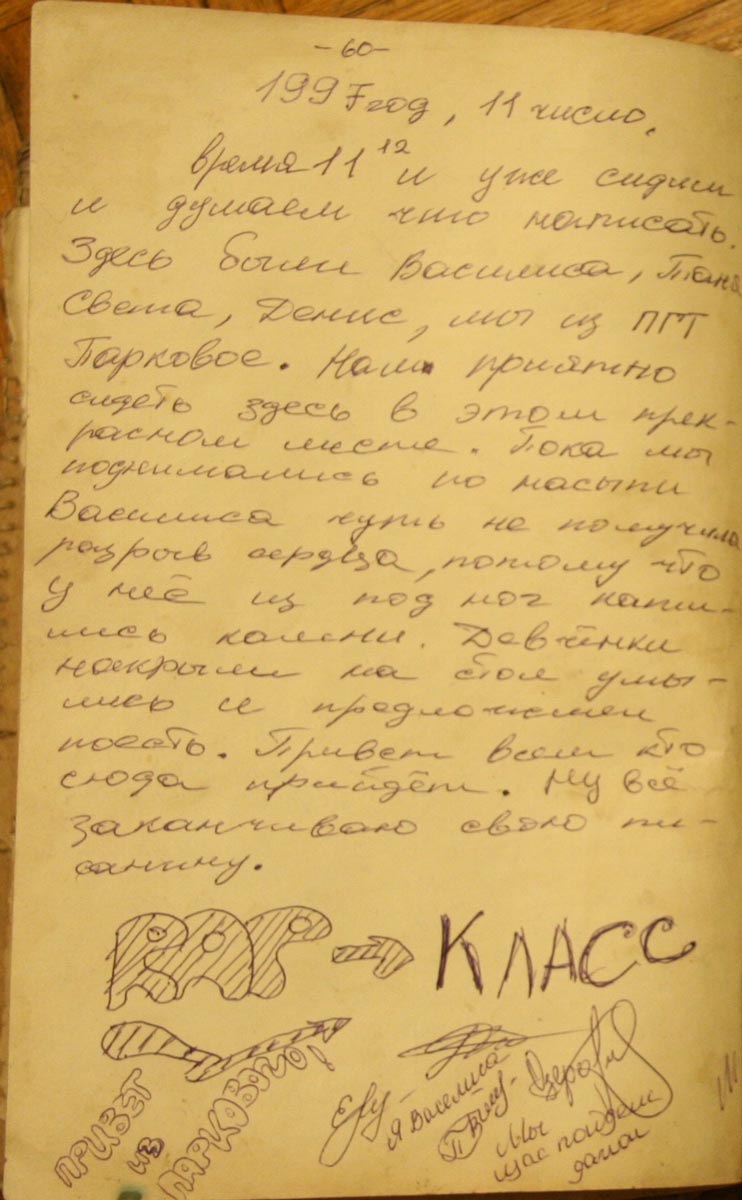 -60-
1997 год, 11 число.
время 11 12 и уже сидим
и думаем что написать.
Здесь были Василиса, Таня
Света, Денис, мы из ПГТ
Парковое. Нам приятно
сидеть здесь в этом прек-
расном месте. Пока мы
поднимались по насыпи
Василиса чуть не получила
разрыв сердца, потому что
у неё из под ног кати-
лись камни. Девчёнки
накрыли на стол умы-
лись и предложили
поесть. Привет всем кто
сюда прийдёт. Ну всё
заканчиваю свою пи-
санину.
RAP КЛАСС
ПРИВЕТ
ИЗ
ПАРКОВОГО!
Я Василиса
Мы
щас пойдем